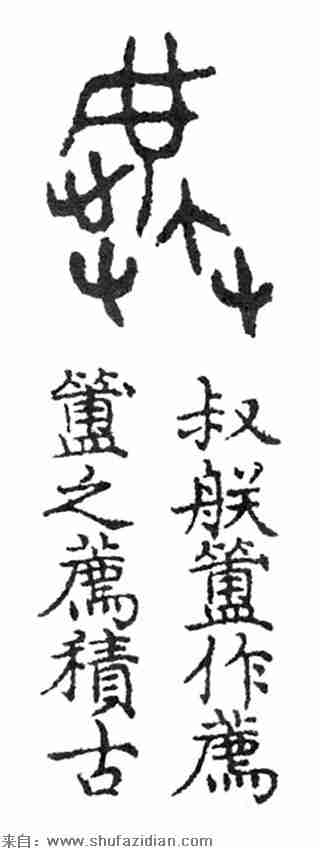 叔朕簠作薦
簠之薦積古
来自：www.shufazidian.com